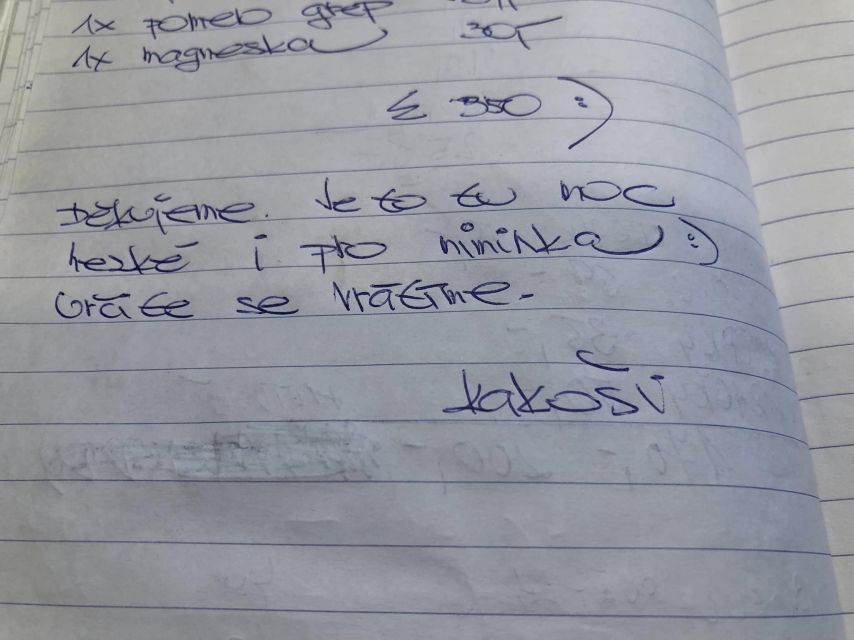 1x pomelo grep
1x magneska 30,-
Σ 350 :)
Děkujeme. Je to tu moc
hezké i pro miminka :)
Určitě se vrátíme.